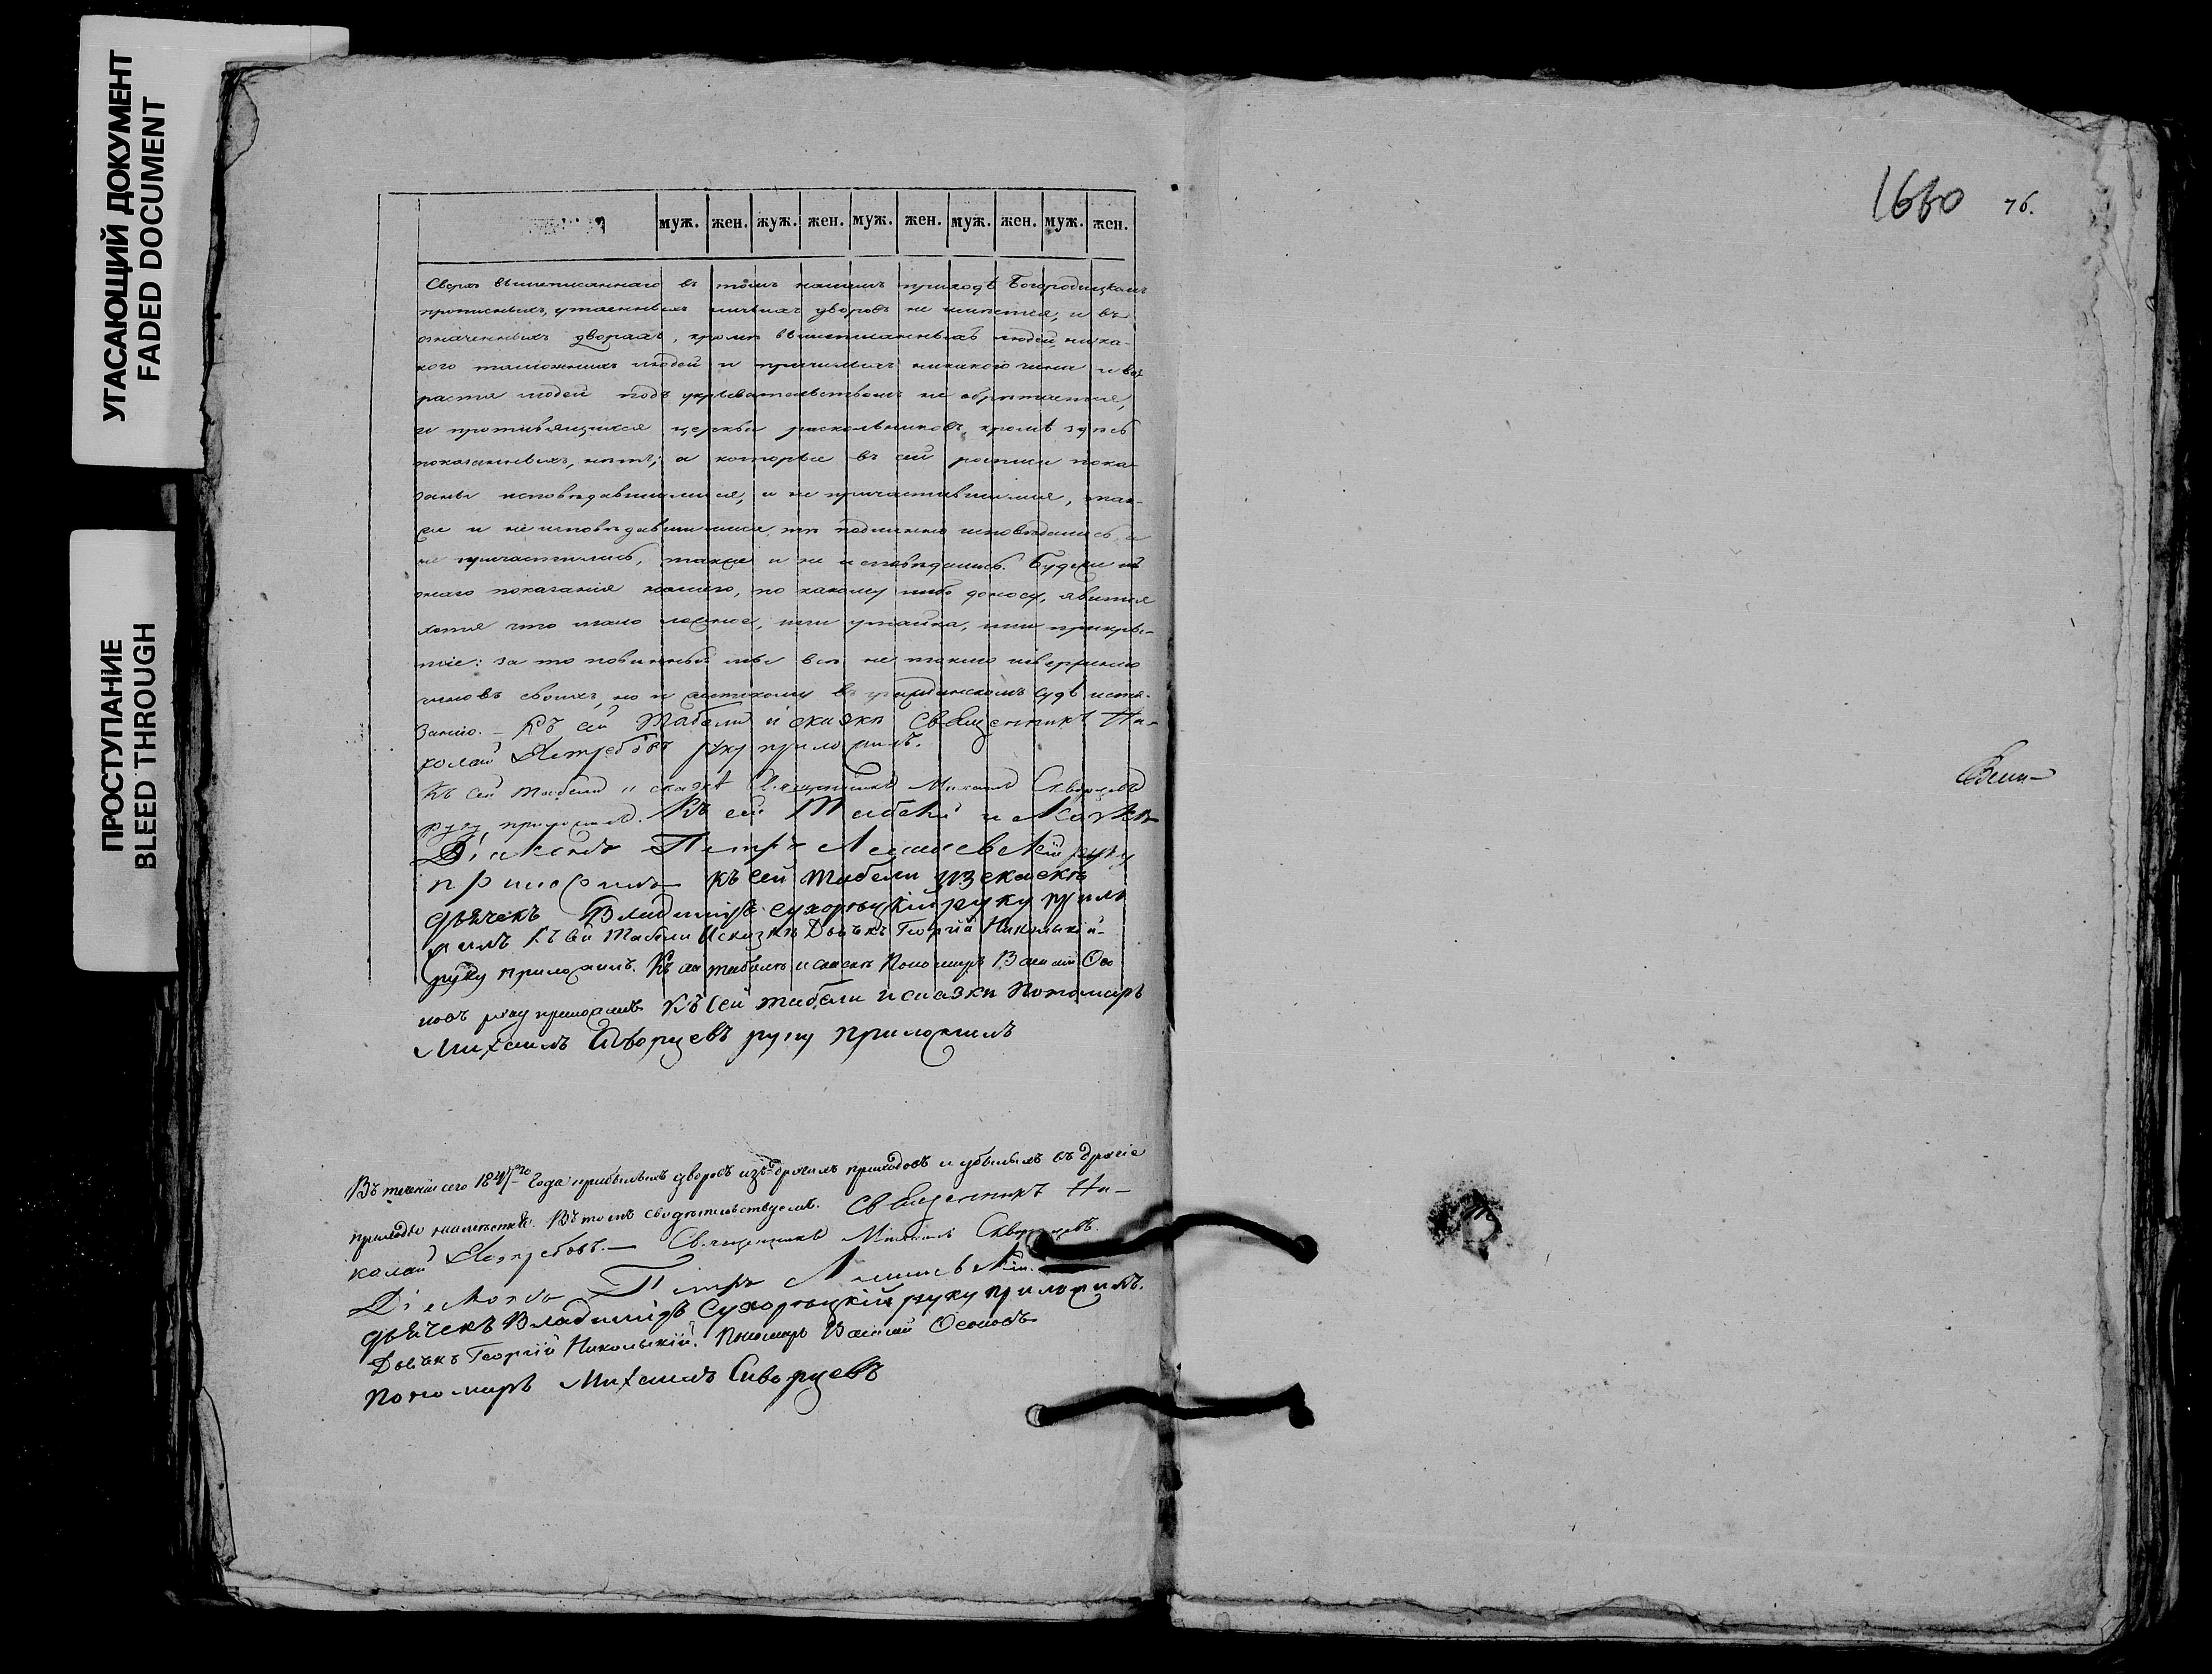 УГАСАЮЩИЙ ДОКУМЕНТ
FADED DOCUMENT
ПРОСТУПАНИЕ
BLEED THROUGH
муж. жен. муж. жен. муж. жен. муж. жен. муж. жен.
Сверхъ вышеписаннаго въ томъ нашемъ приходѣ Богородицкомъ
прописныхъ, утаенныхъ ничьихъ дворовъ не имѣется, и въ
означенныхъ дворахъ, кромѣ вышеписанныхъ людей, ника-
кого тамошнихъ людей и пришлыхъ никакого чина и воз-
раста людей подъ укрывательствомъ не обрѣтается,
и противящихся церкви раскольниковъ, кромѣ здѣсь
показанныхъ, нѣтъ; а которые въ сей росписи пока-
заны исповѣдавшимися, и не причастившимися, так-
же и не исповѣдавшимися, тѣ подлинно исповѣдались, а
не причастились, также и не исповѣдались. Будеже въ
онаго показанія нашего, по какому либо доносу, явится
хотя что мало ложное, или утайка, или прикры-
тіе: за то повинны мы всѣ не токмо изверженію
чиновъ своихъ, но и жестокому въ гражданскомъ судѣ истя-
занію. – Къ сей табели и сказки Священникъ Ни-
колай Ястребовъ руку приложилъ.
Къ сей табели и сказкѣ Священникъ Михаилъ Скворцовъ
руку приложилъ. Къ сей Табели и
Діаконъ Петръ руку
приложилъ къ сей табели и
дьячекъ Владиміръ Сухорецкій руку прило
жилъ Къ сей табели и сказкѣ Дьячкъ Георгій Никольскій
руку приложилъ. Къ сей табели и сказкѣ Пономарь Василій Осо
новъ руку приложилъ Къ сей табели и сказки пономарь
Михаилъ Скворцевъ руку приложилъ
Въ теченіи сего года прибылыхъ дворовъ изъ другихъ приходовъ и убылыхъ въ другіе
приходы Въ томъ свидѣтельствуемъ. Священникъ Ни-
колай Ястребовъ. – Священникъ Михаилъ Скворцовъ.
Діаконъ Петръ
дьячекъ Владиміръ Сухорецкій руку приложилъ.
Дьячкъ Георгій Никольскій. Пономарь Василій Осоновъ
пономарь Михаилъ Скворцевъ
1660 76.